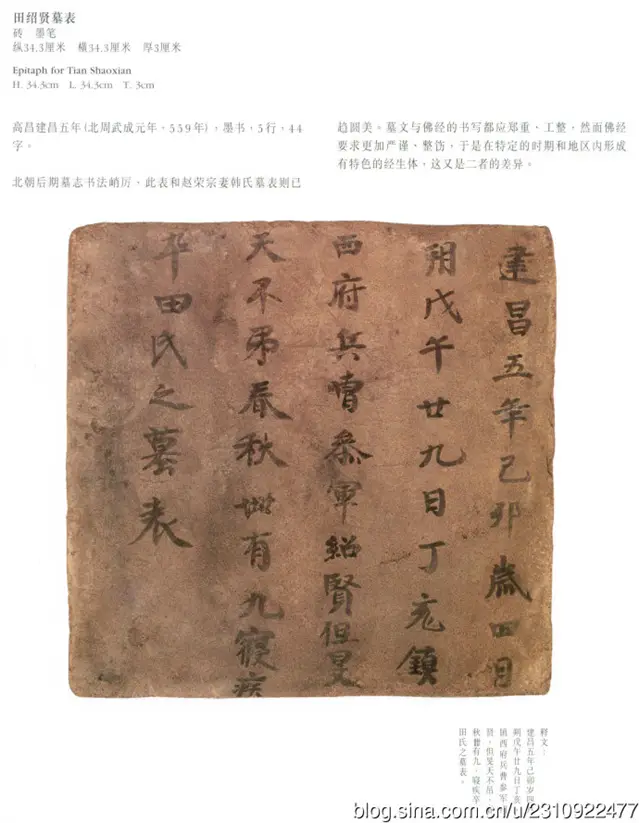 田绍贤墓表
砖 墨笔
纵34.3厘米 横34.3厘米 厚3厘米
Epitaph for Tian Shaoxian
H. 34.3cm L. 34.3cm T. 3cm
高昌建昌五年(北周武成元年,559年),墨书,5行,44
字。
北朝后期墓志书法峭厉,此表和赵荣宗妻韩氏墓表则已
趋圆美。墓文与佛经的书写都应郑重、工整,然而佛经
要求更加严谨、整饬,于是在特定的时期和地区内形成
有特色的经生体,这又是二者的差异。
建昌五年己卯歲四月
朔戊午廿九日丁亥鎮
西府兵曹叅軍紹賢但旻
天不弔春秋卌有九寢疾
卒田氏之墓表
释文:
建昌五年己卯岁四
朔戊午廿九日丁亥
镇西府兵曹参军
贤,但旻天不吊,
秋卌有九,寝疾卒
田氏之墓表。
blog.sina.com.cn/u/2310922477